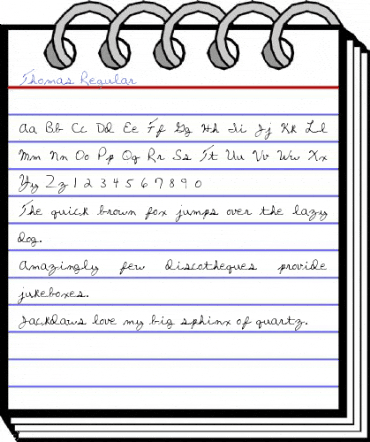 Thomas Regular
Aa Bb Cc Dd Ee Ff Gg Hh Ii Jj Kk Ll
Mm Nn Oo Pp Qq Rr Ss Tt Uu Vv Ww Xx
Yy Zz 1 2 3 4 5 6 7 8 9 0
The quick brown fox jumps over the lazy
dog.
Amazingly few discotheques provide
jukeboxes.
Jackdaws love my big sphinx of quartz.